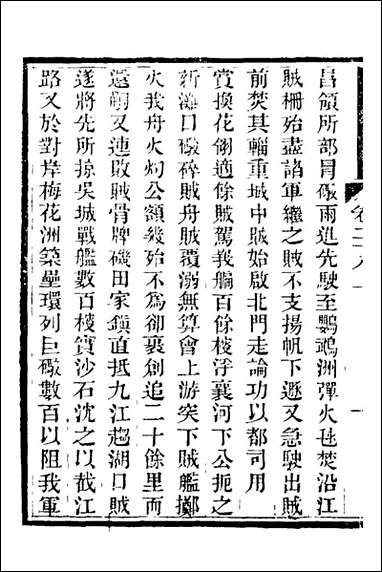 昌領所部冒礮雨進先駛至鸚鵡洲彈火毬焚沿江
賊柵殆盡諸軍繼之賊不支揚帆下遁又急駛出賊
前焚其輜重城中賊始啟北門走論功以都司用
賞換花翎適餘賊駕義艑百餘梭浮襄河下公扼之
新灘口礮碎賊舟賊覆溺無算會上游突下賊艦擲
火我舟火灼公額幾殆不為卻裹創追二十餘里而
還嗣又連敗賊骨牌磯田家鎮直抵九江趨湖口賊
遂將先所掠吳城戰艦數百梭實沙石沈之以截江
路又於對岸梅花洲築壘環列巨礮數百以阻我軍
卷二八